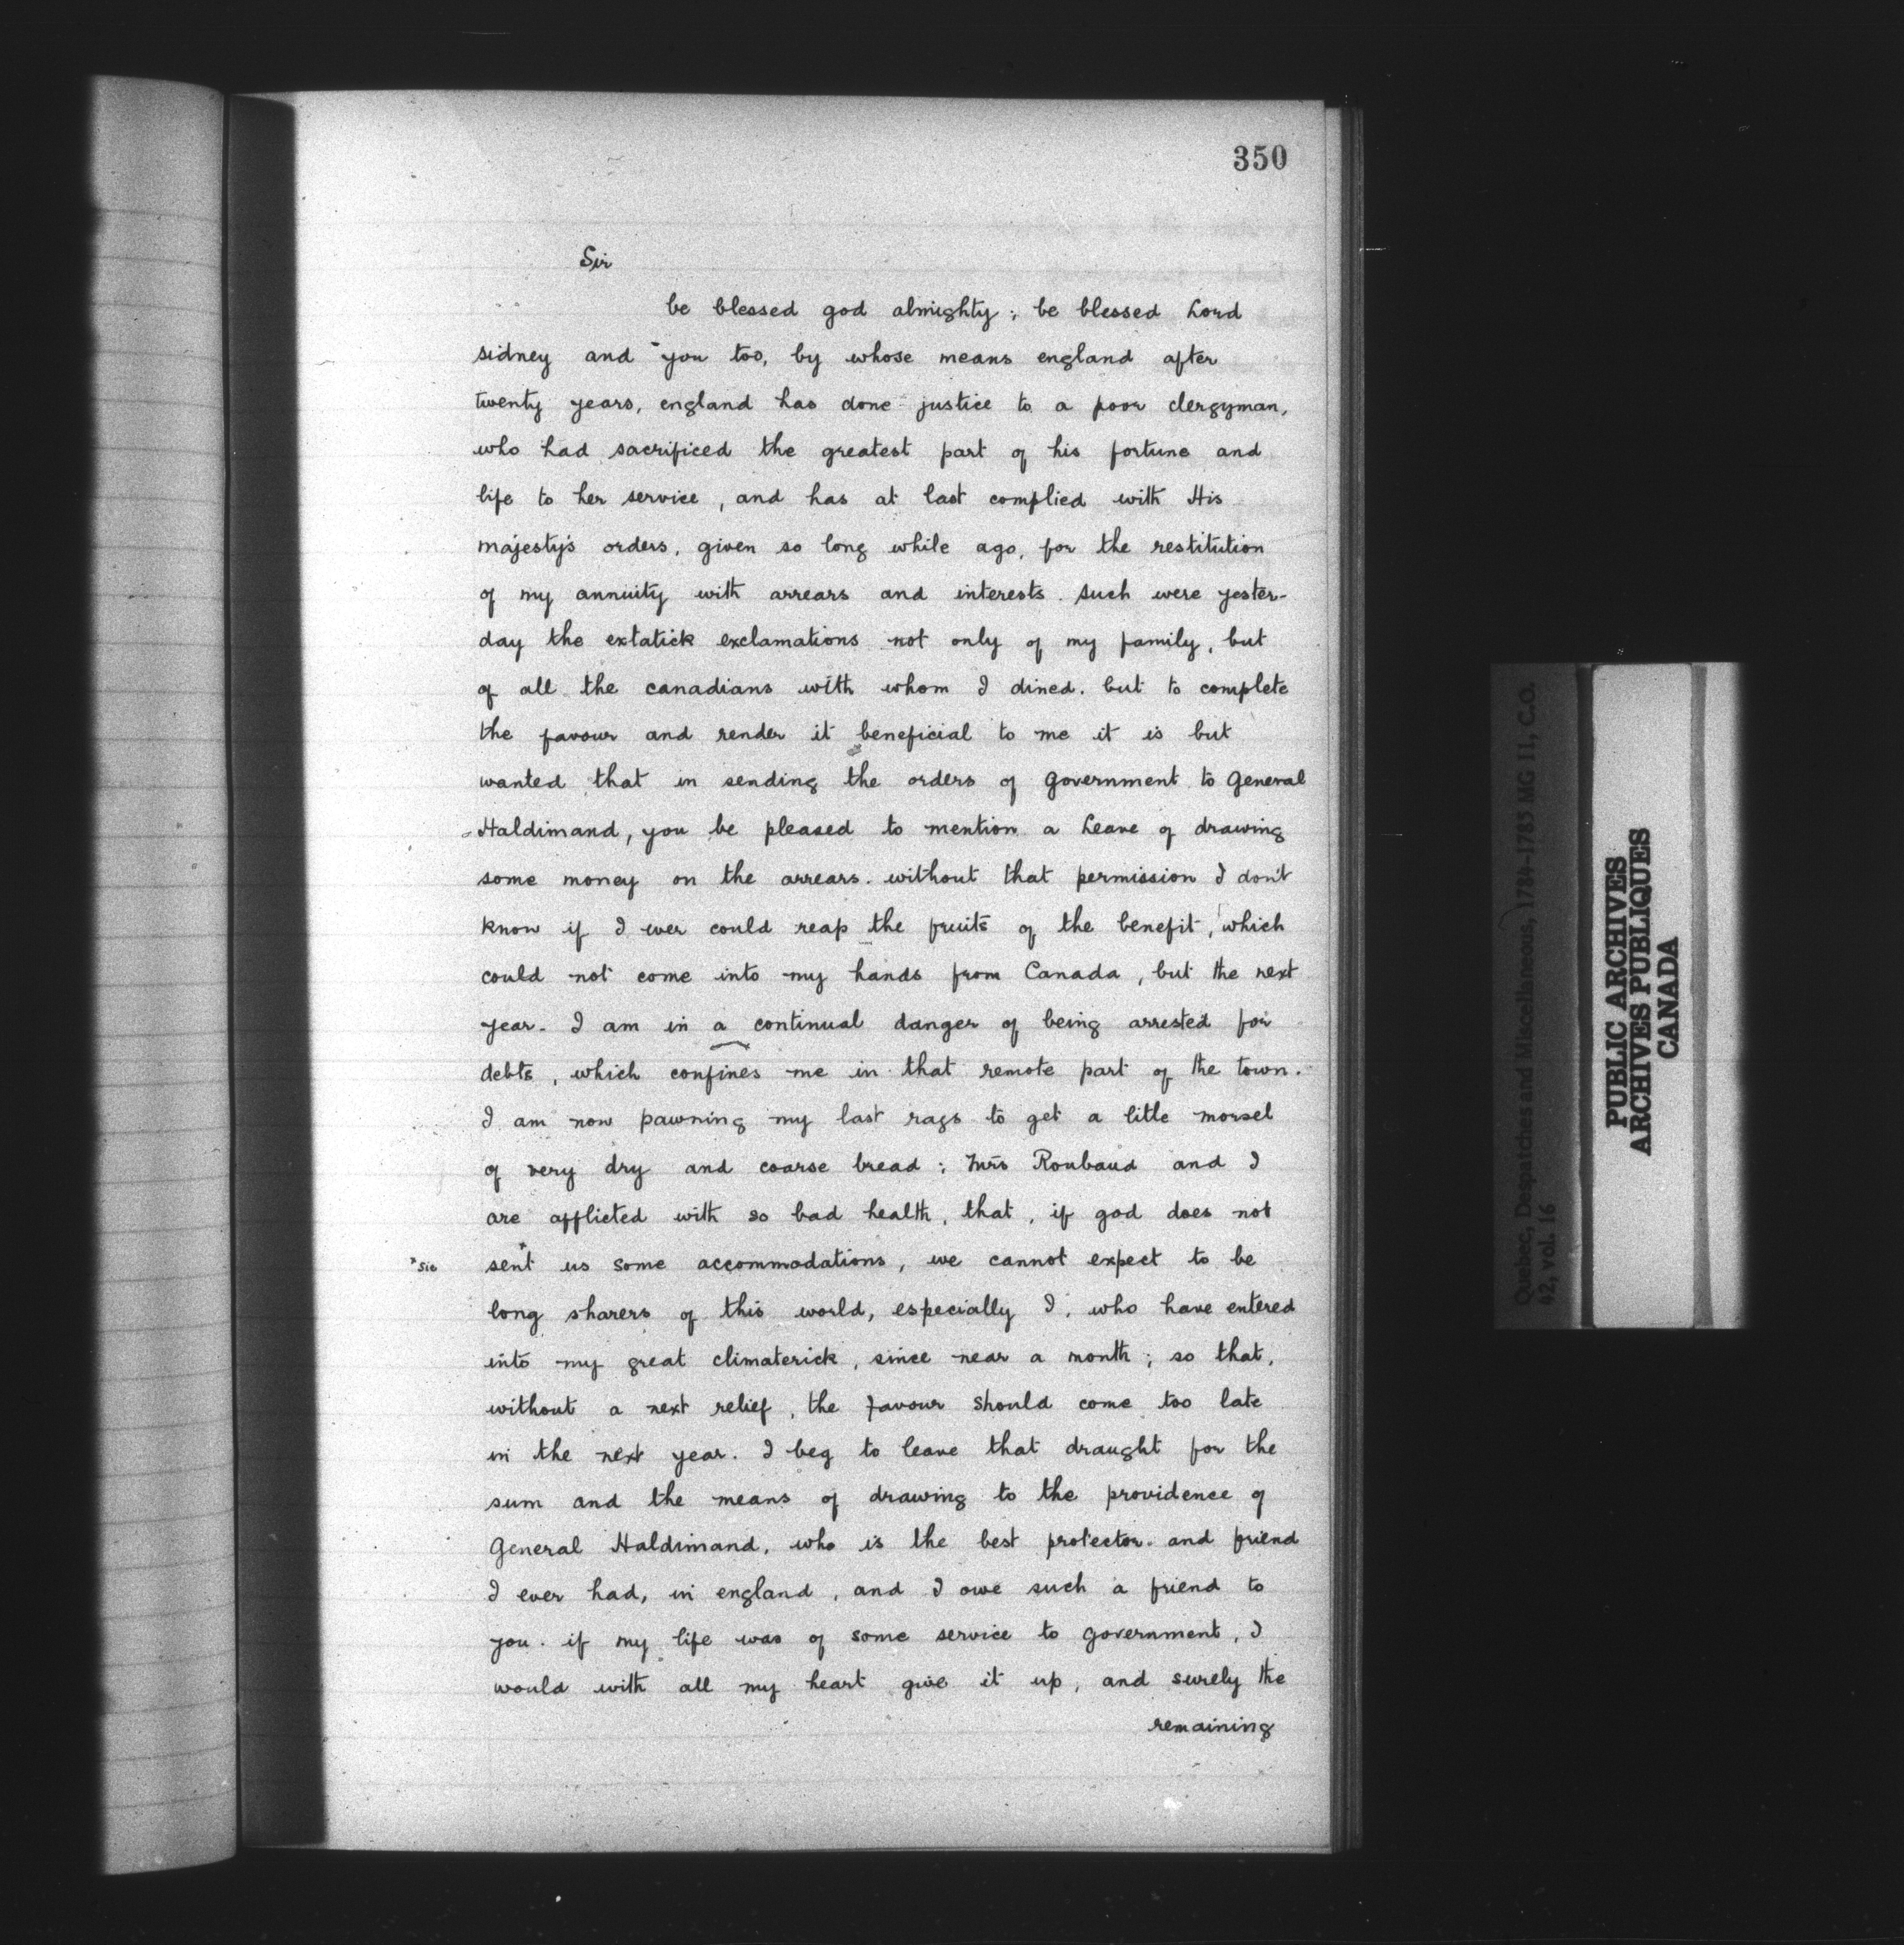 350
Sir
be blessed god almighty; be blessed Lord
sidney and you too, by whose means england after
twenty years, england has done justice to a poor clergyman,
who had sacrificed the greatest part of his fortune and
life to her service, and has at last complied with His
majesty's orders, given so long while ago, for the restitution
of my annuity with arrears and interests. such were yester-
day the extatick exclamations not only of my family, but
of all the canadians with whom I dined. but to complete
the favour and render it beneficial to me it is but
wanted that in sending the orders of government to General
Haldimand, you be pleased to mention a Leave of drawing
some money on the arrears. without that permission I don't
know if I ever could reap the fruits of the benefit, which
could not come into my hands from Canada, but the next
year. I am in a continual danger of being arrested for
debts, which confines me in that remote part of the town.
I am now pawning my last rags to get a litle morsel
of very dry and coarse bread; Mrs Roubaud and I
are afflicted with so bad health, that, if god does not
*sic sent* us some accommodations, we cannot expect to be
long sharers of this world, especially I, who have entered
into my great climaterick, since near a month; so that,
without a next relief, the favour should come too late
in the next year. I beg to leave that draught for the
sum and the means of drawing to the providence of
General Haldimand, who is the best protector and friend
I ever had, in england, and I owe such a friend to
you. if my life was of some service to government, I
would with all my heart give it up, and surely the
remaining
Quebec, Despatches and Miscellaneous, 1784-1785 MG 11, C.O.
42, vol. 16
PUBLIC ARCHIVES
ARCHIVES PUBLIQUES
CANADA